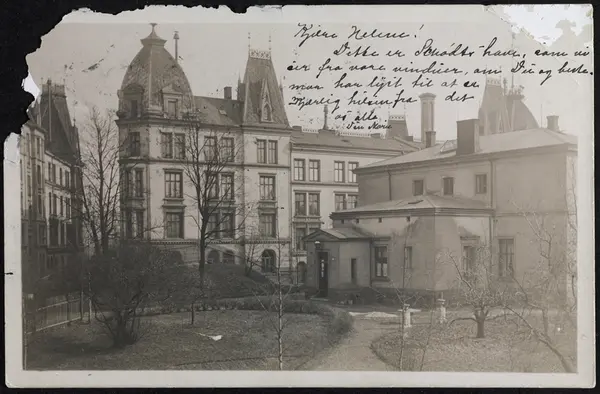 Kjære Helene!
Dette er Schødts have, som vi
ser fra vore vinduer, om Du og beste-
mor har lyst til at se
Hjærtelig hilsen fra det
os alle
Din Marie